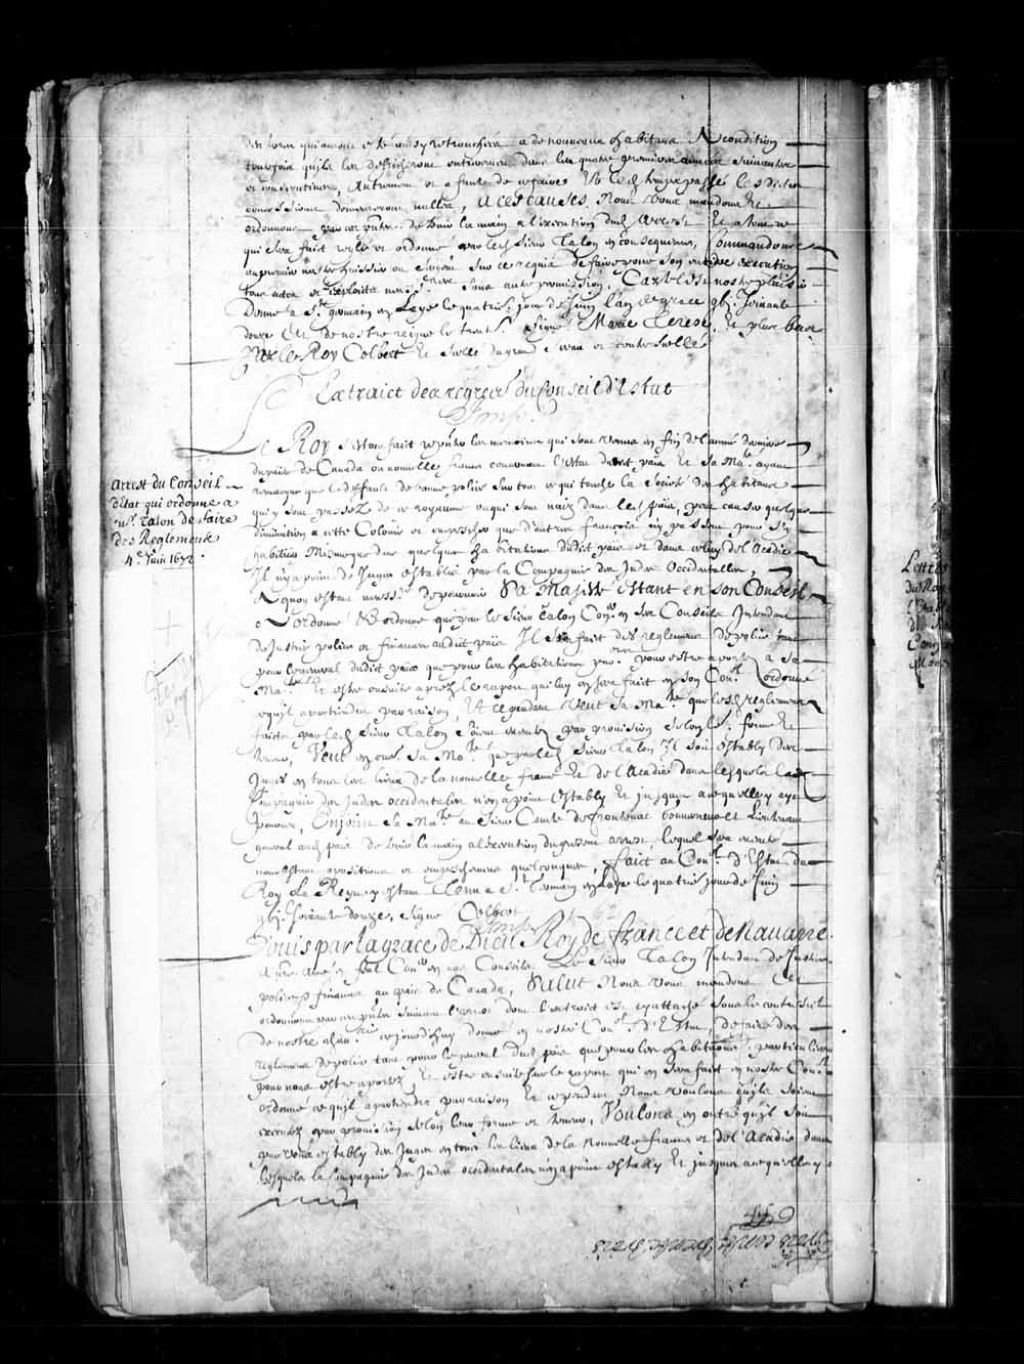 des terres qui auront esté ainsy retranchées a de nouveaux habitans A condition
toutefois quils les defricheront entierement dans les quatre premieres années suivantes
et consecutives, Autrement et a faute de ce faire Et led temps passé lesdites
concessions demeureront nulles, A CES CAUSES Nous vous mandons Et
ordonnons par ces pntes de tenir la main a l'execution dud Arrest Et a tout ce
qui sera fait reglé et ordonné par led sieur Talon en consequence, Commandons
au premier nostre huissier ou sergent sur ce requis de faire pour son entiere execution
tous actes et exploits necessres sans autre permission, Car tel est nostre plaisir
Donné a St germain en Laye le quatrie jour de Juin l'an de grace gbj. Soixante
douze Et de nostre regne le trente. Signé Marie Terese, Et plus bas
Par le Roy Colbert Et scellé du grand sceau et contrescellé
Extraict des registres du Conseil d'Estat
Le Roy s'estant fait repnter les memoires qui sont venus en fin de l'année derniere
du païs de Canada ou nouvelle france concernant l'estat dudit païs Et sa Mate. ayant
remarqué que le deffaut de bonne police sur tout ce qui touche la société des habitans
qui y sont passez de ce royaume ou qui sont naiz dans led païs, peut causer quelque
diminution a cette Colonie et empescher que d'autres françois ny passent pour s'y
habituer Mesmes que dans quelques habitations dudit païs et dans celuy de l'Acadie
Il n'y a point de Juges establis par la Compagnie des Indes Occidentalles,
A quoy estant necessre de pourvoir Sa Majesté Estant en son Conseil
a ordonné & ordonne que par le Sieur Talon Conr. en ses Conseils Intendant
de Justice police et finances audit païs Il sera fait des reglemens de police tant
pour le general dudit païs que pour les habitations pour estre aportez a sa
Mate. Et estre ensuite aprez le raport qui luy en sera fait en son Conl. ordonné
ce quil apartiendra par raison, Et cependant Veut sa Mate que lesd reglemens
faicts par led Sieur Talon soient executez par provision selon leur forme Et
teneur, Veut en outre Sa Mate que par led Sieur Talon Il soit estably des
Juges en tous les lieux de la nouvelle france Et de l'Acadie dans lesquels la
Compagnie des Indes occidentales n'en a point estably Et jusques a ce qu'elle y ayt
pourveu, Enjoint Sa Mate au Sieur Comte de frontenac Gouverneur et Lieutenant
general aud païs de tenir la main a l'execution du present arrest lequel sera executé
nonobstant oppositions et empeschemens quelconques, faict au Conl. d'Estat du
Roy La Reyne y estant Tenu a St. Germain en Laye le quatrie jour de Juin
gbj. soixante douze, Signé Colbert
Louis par la grace de Dieu Roy de france et de Navarre
A nre amé et feal Conr en nos Conseils Le Sieur Talon Intendant de Justice
police et finances au païs de Canada, Salut Nous vous mandons Et
ordonnons par ces pntes suivant l'arrest dont l'extraict est cy attaché sous le contrescel
de nostre chanrie ce jourd'huy donné en nostre Conl. d'Estat, de faire des
reglemens de police tant pour le general dud païs que pour les habitations particulieres
pour nous estre aportez Et estre ensuite sur le raport qui en sera fait en nostre Conl.
ordonné ce quil apartiendra par raison Et cependant Nous voulons quils soient
executez par provision selon leur forme et teneur, Voulons en outre quil soit
par vous estably des Juges en tous les lieux de la nouvelle france et de l'Acadie dans
lesquels la Compagnie des Indes occidentales n'en a point estably Et jusques a ce qu'elle y
Arrest du Conseil
d'Etat qui ordonne a
mr. Talon de faire
des Reglemens
4e. Juin 1672.
Lettres
du Roy